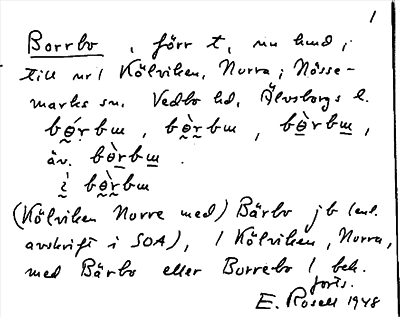 1
Borrbo , förr t, nu lund ;
till nr 1 Kölviken, Norra ; Nösse-
marks sn. Vedbo hd, Älvsborgs l.
(Kölviken Norre med) Bärbo jb (enl.
avskrift i SOA), 1 Kölviken, Norra,
med Bärbo eller Borrebo 1 bek.
jorts.
E. Rosell 1948